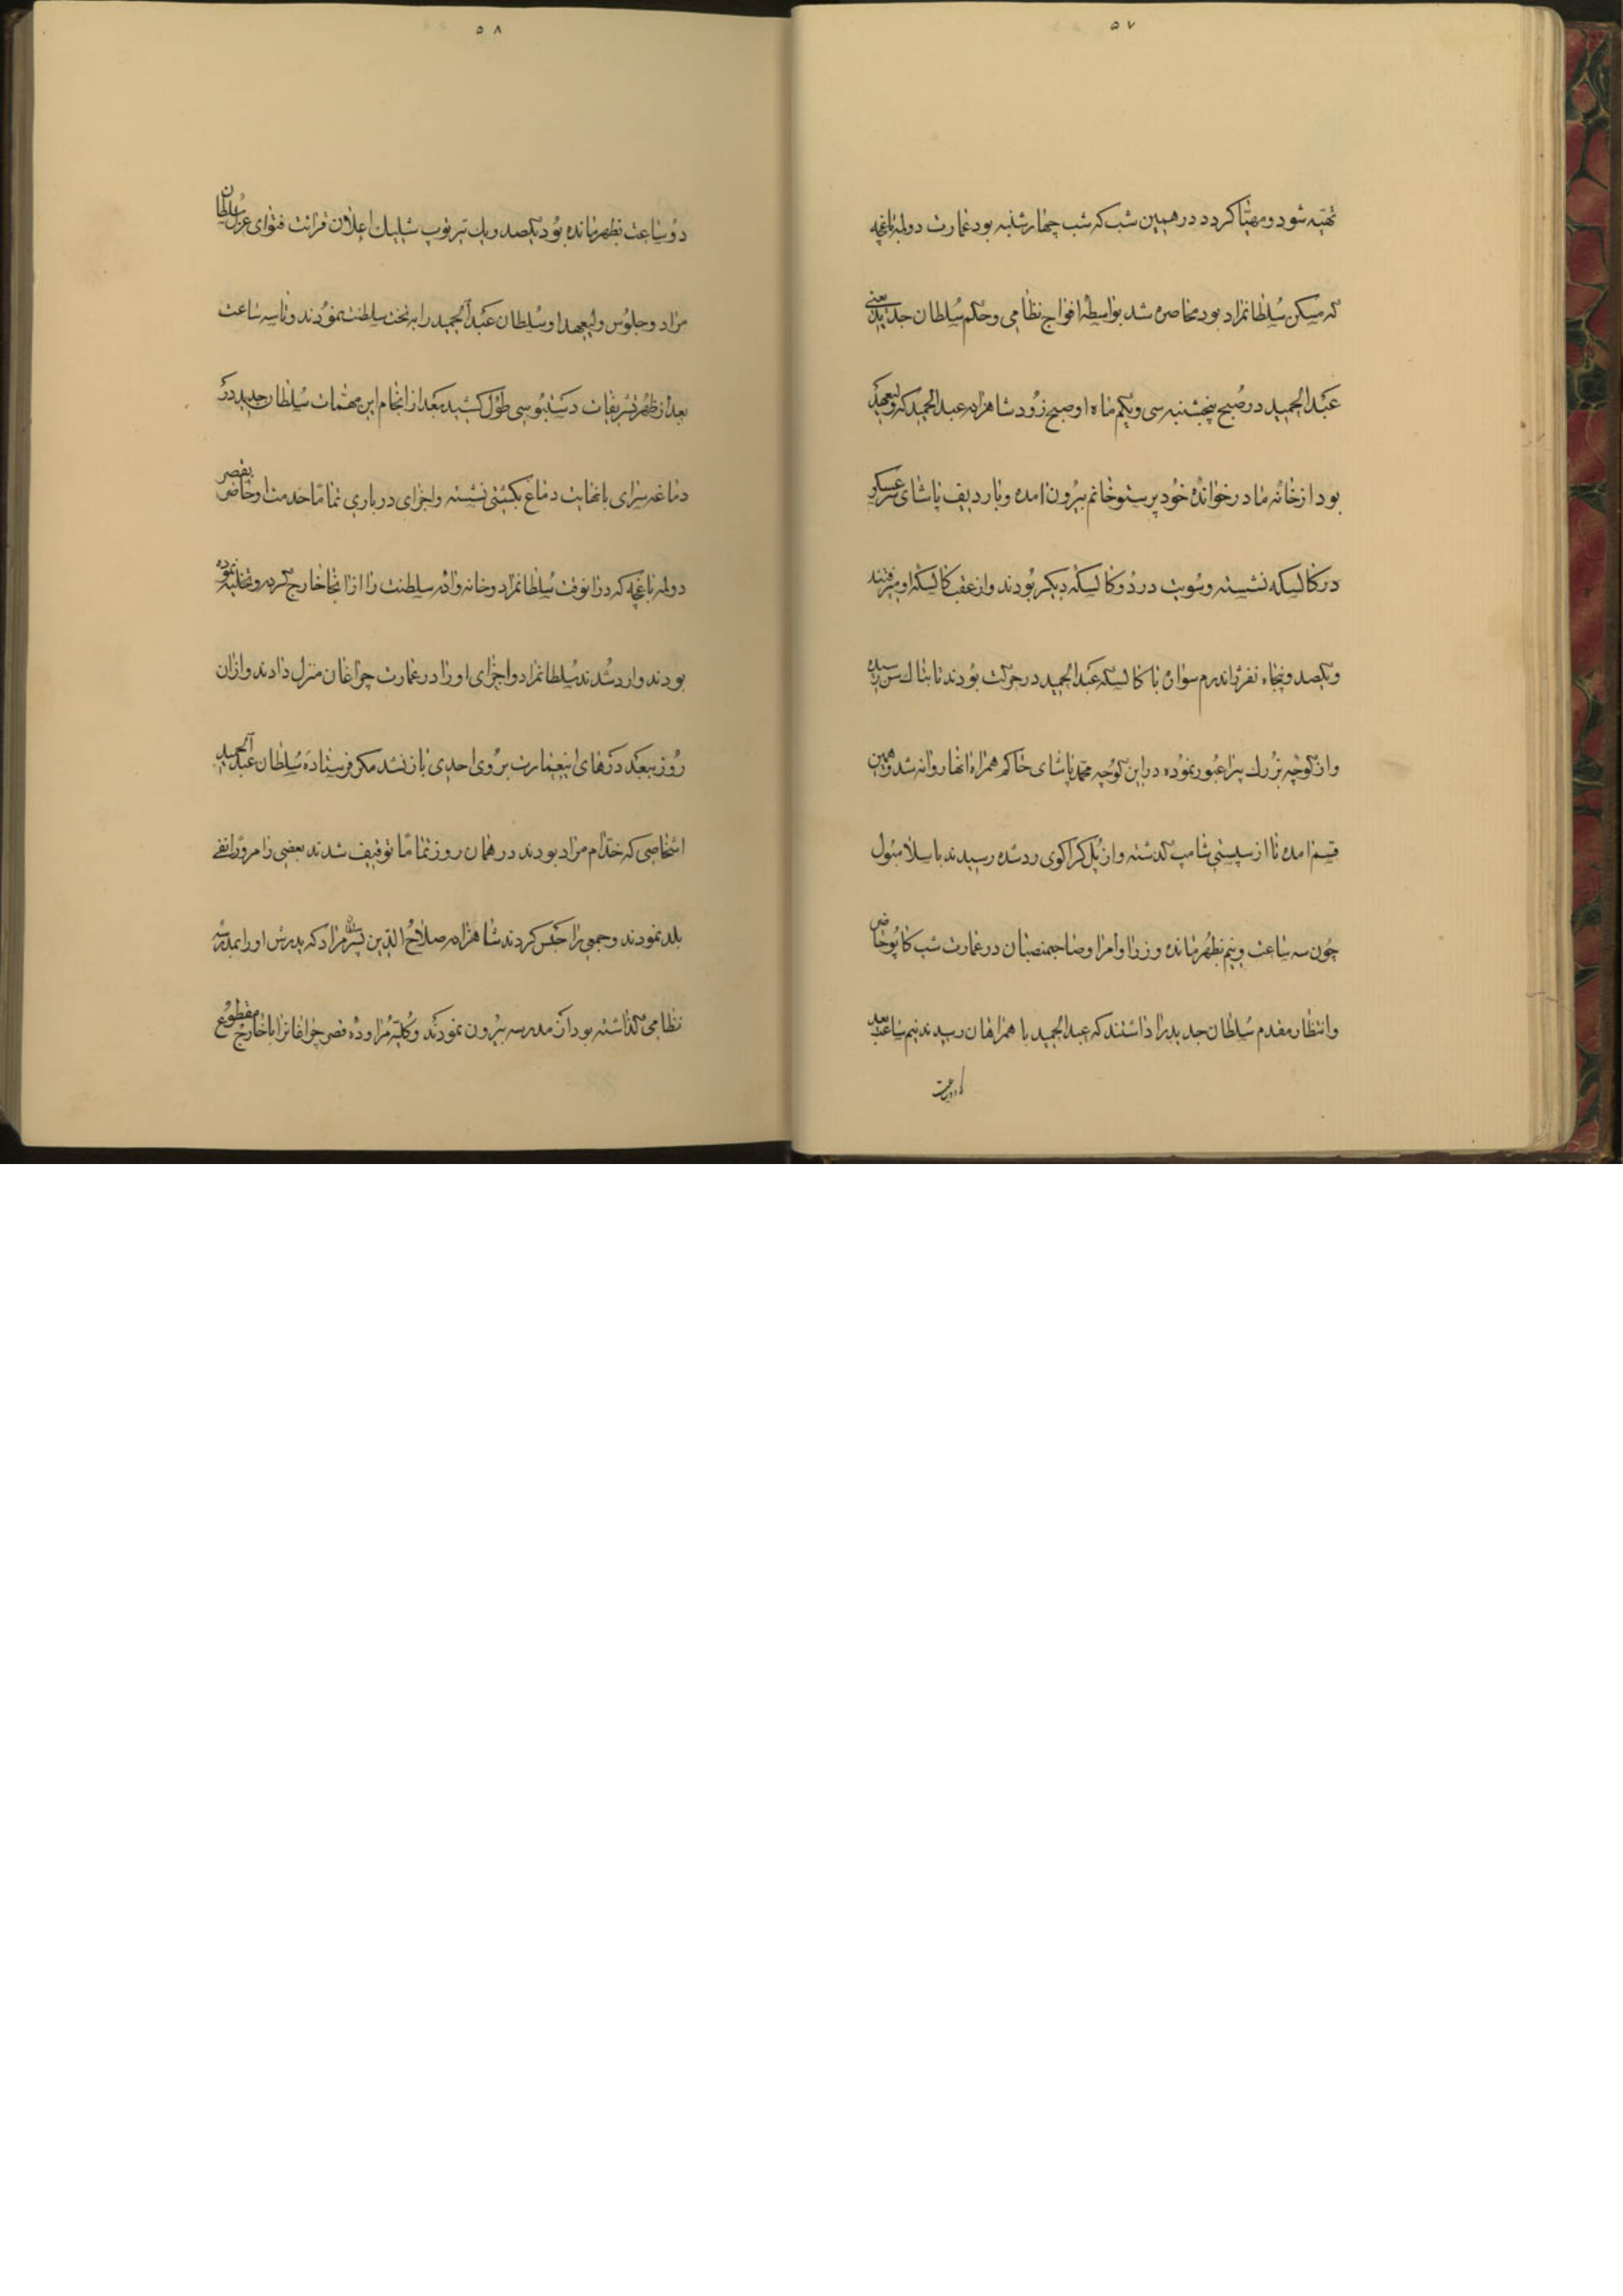 ۵۷
تهیّه شود و مهیّا کردد در همین شب که شب چهارشنبه بود عمارت دولمه باغچه
که مسکن سُلطانمراد بود محاصره شد بواسطهٔ افواج نظامی و حکم سُلطان جدید یعنی
عَبدالحمید در صُبح پنجشنبه سی و یکم ماه اوصبح زود شاهزاده عبدالحمید که ولیعهد
بود از خانه مادر خواندهٔ خُود پرستو خانم بیرُون امده و با ردیف پاشای سرعسکر
در کالسکه نشسته و سُویت در دُو کالسکهٔ دیکر بُودند و از عقب کالسکه او میرفتند
و یکصد و پنجاه نفر ژاندرم سواره با کالسکه عَبدالحمید در حرکت بُودند تا بتاک سن رسیده
و از کوچه بزرک پرا عبُور نمُوده در این کُوچه محمّد پاشای حاکم همراه انها روانه شد و همین
قسم امده تا از سپستی شامپ کذشته و از پُل کراکوی رد شده رسیدند باسلامبُول
چُون سه ساعت و نیم بظُهر مانده وزرا و امرا و صاحبمنصبان در عمارت شب کاپُو حاضر
و انتظار مقدم سُلطان جدید را داشتند که عبدالحمید با همراهان رسیدند نیم ساعت بعد
که دو ساعت
۵۸
دوُ ساعت بظهر مانده بُود یکصد و یک تیر توپ شلیک اعلان قرائت فتوای عزل سلطان
مراد و جلوُس ولیعهد او سُلطان عَبدالحمید را بر تخت سلطنت نمُودند و تا سه ساعت
بعد از ظهر تشریفات دستبُوسی طوُل کشید بَعد از انجام این مهمّات سُلطان جدید در
دماغه سرای با نهایت دماغ بکشتی نشسته و اجزای درباری تماماً خدمت او حاضر بقصر
دولمه باغچه که در انوقت سُلطانمراد و خانوادهٔ سلطنت را از انجا خارج کرده و تخلیه نموده
بودند وارد شُدند سُلطانمراد و اجزای او را در عمارت چراغان منزل دادند و از ان
روُز ببعَد دَرهای اینعمارت برُوی احدی باز نشد مکر فرستادهٔ سُلطان عَبدالحمید
اشخاصی که خدّام مراد بودند در همان روز تماماً توقیف شدند بعضی را مروراً نفی
بلد نمودند و جمعی را حَبس کردند شاهزاده صلاحُ الدّین پسر سلطان مراد که پدرش او را بمدرسه
نظامی کذاشته بود از مدرسه بیرُون نمودند و کُلیّه مُراودهٔ قصر چراغانرا با خارج مقطوُع